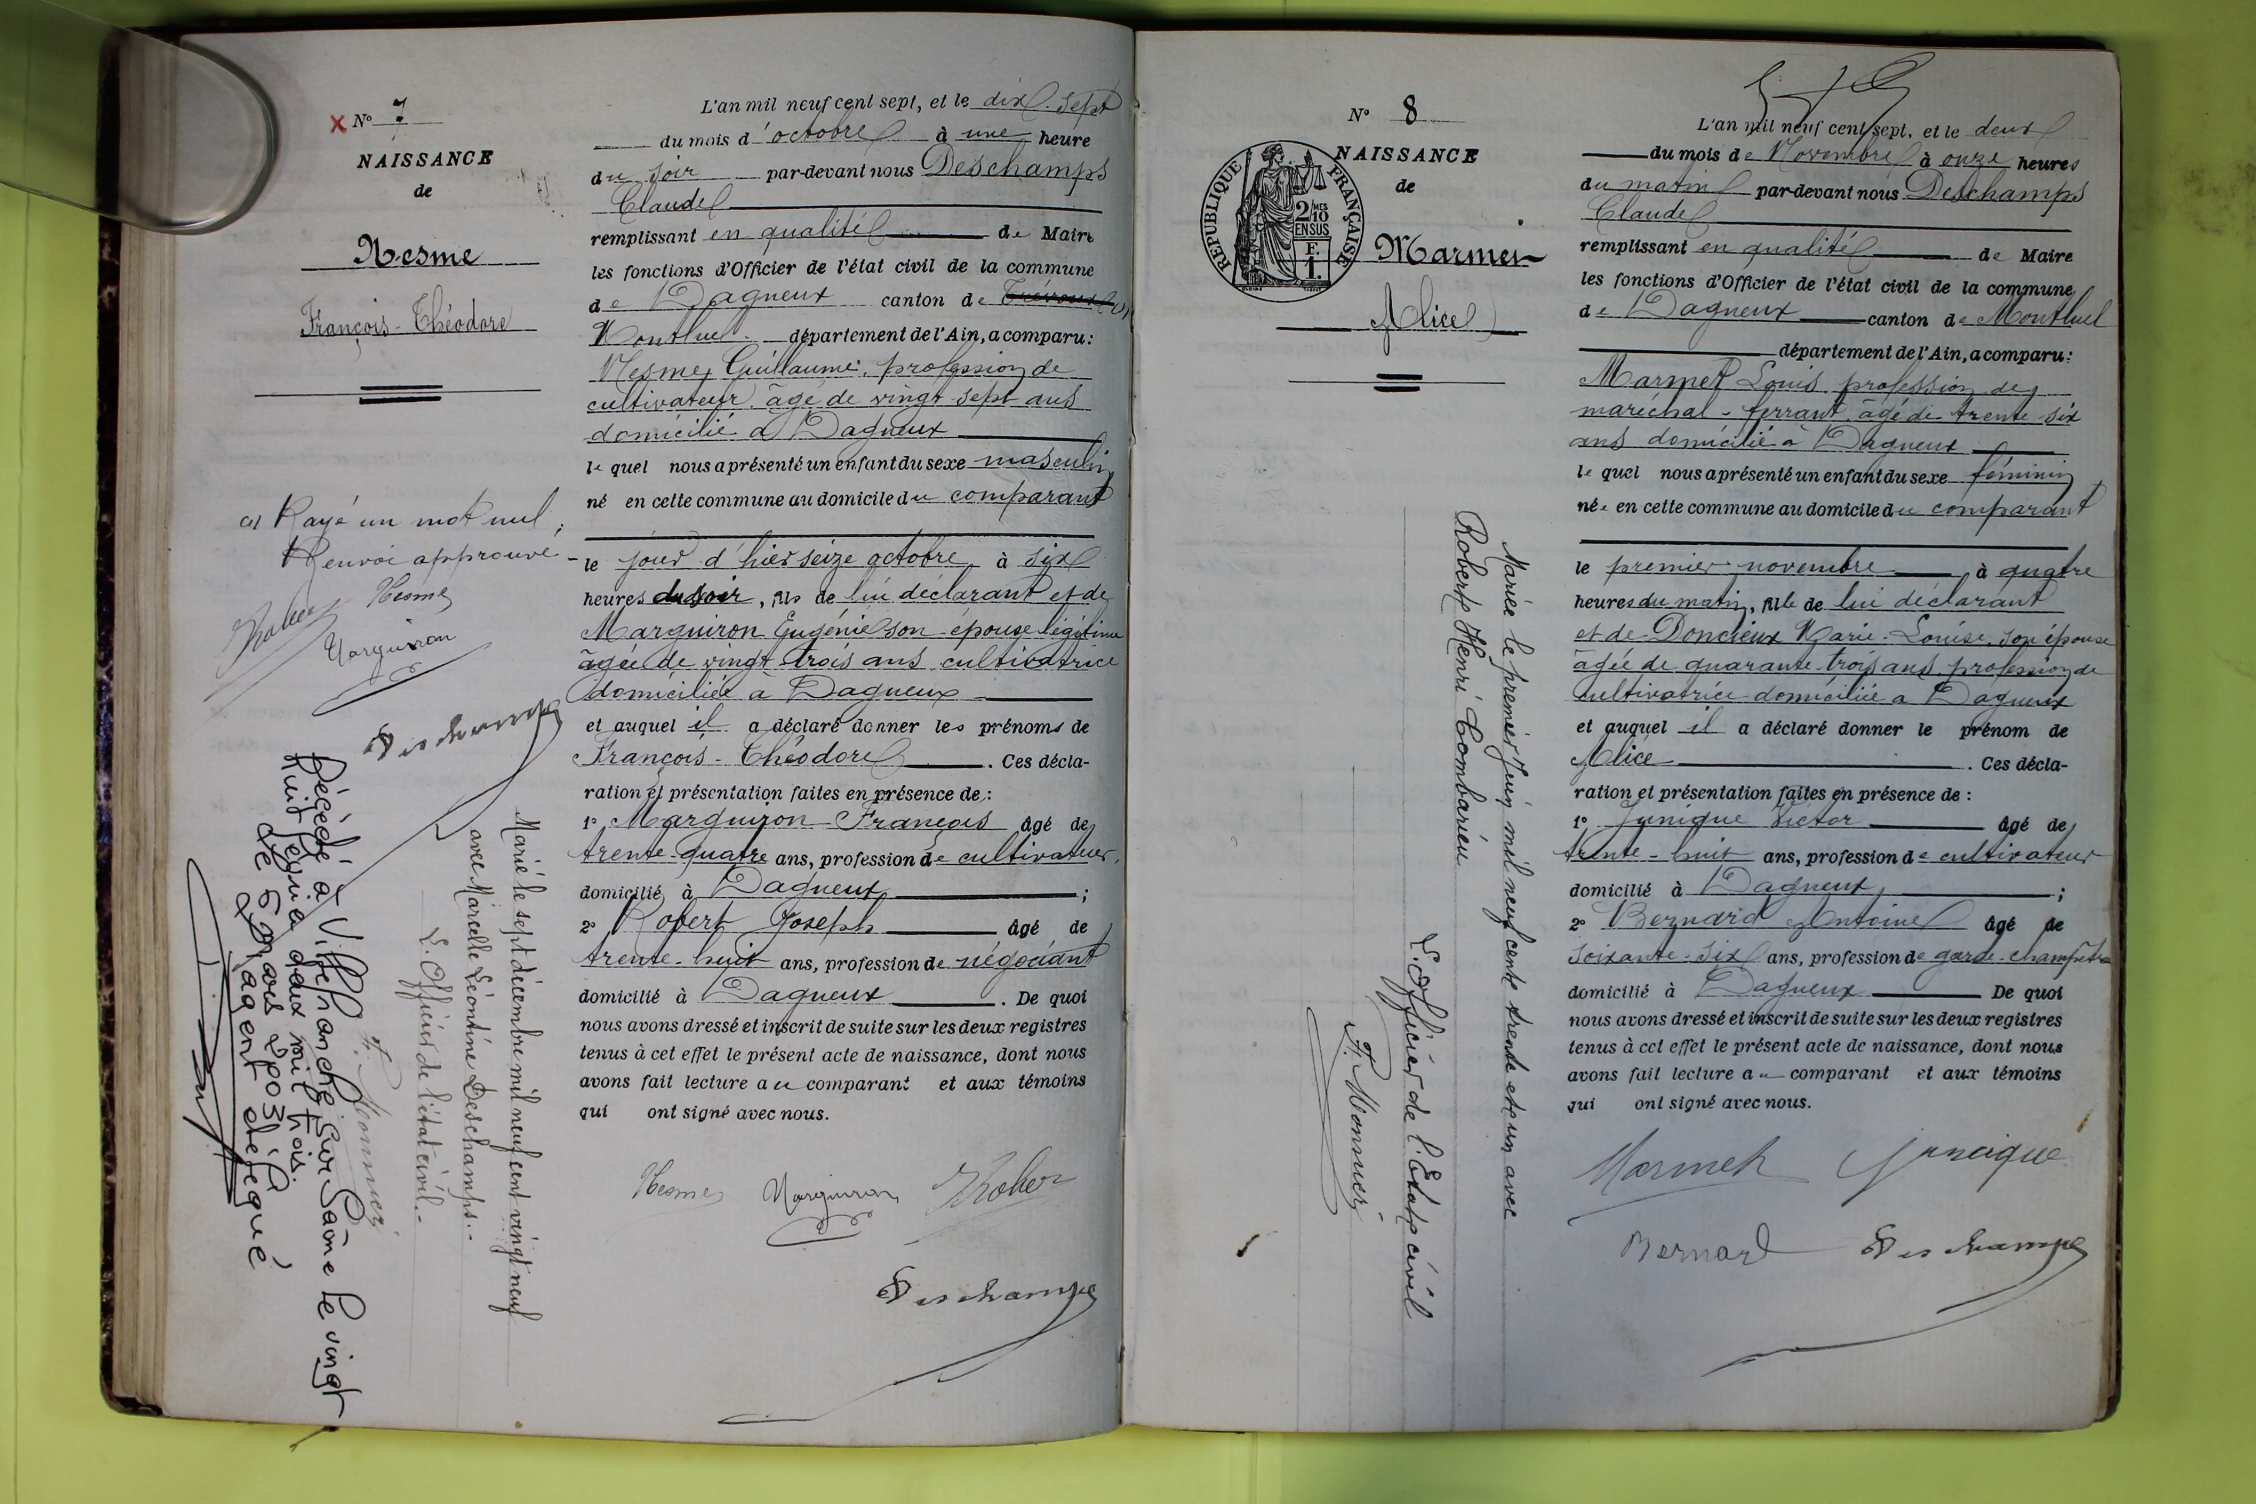 N° 7
NAISSANCE
de
Nesme
François-Théodore
(1) Rayé un mot nul,
Renvoi approuvé
Nesme
Marguiron
Deschamps
Marié le sept décembre mil neuf cent vingt neuf
avec Marcelle Léontine Deschamps.-
L'Officier de l'état civil.-
F. Monnier
Décédé à Villefranche sur Saône le vingt
huit février deux mil trois.
Le 6 mars 2003
L'agent délégué
L'an mil neuf cent sept, et le dix-sept
du mois d'octobre à une heure
du soir par-devant nous Deschamps
Claude
remplissant en qualité de Maire
les fonctions d'Officier de l'état civil de la commune
de Dagneux canton de Trévoux (1)
Montluel département de l'Ain, a comparu:
Nesme, Guillaume, profession de
cultivateur, âgé de vingt-sept ans
domicilié à Dagneux
lequel nous a présenté un enfant du sexe masculin
né en cette commune au domicile du comparant
le jour d'hier seize octobre à six
heures du soir, fils de lui déclarant et de
Marguiron Eugénie son épouse légitime
âgée de vingt-trois ans cultivatrice
domiciliée à Dagneux
et auquel il a déclaré donner les prénoms de
François-Théodore. Ces décla-
ration et présentation faites en présence de:
1° Marguiron François âgé de
trente-quatre ans, profession de cultivateur,
domicilié à Dagneux;
2° Robert Joseph âgé de
trente-huit ans, profession de négociant
domicilié à Dagneux. De quoi
nous avons dressé et inscrit de suite sur les deux registres
tenus à cet effet le présent acte de naissance, dont nous
avons fait lecture au comparant et aux témoins
qui ont signé avec nous.
Nesme Marguiron JRober
Deschamps
N° 8
NAISSANCE
de
RÉPUBLIQUE FRANÇAISE
2/10 MES
EN SUS
F.
1.
Marmet
Alice
Mariée le premier Juin mil neuf cent trente et un avec
Robert Henri Combarieu
L'Officier de l'Etat civil
F. Monnier
L'an mil neuf cent sept, et le deux
du mois de Novembre à onze heures
du matin par-devant nous Deschamps
Claude
remplissant en qualité de Maire
les fonctions d'Officier de l'état civil de la commune
de Dagneux canton de Montluel
département de l'Ain, a comparu:
Marmet Louis profession de
maréchal-ferrant, âgé de trente-six
ans domicilié à Dagneux
lequel nous a présenté un enfant du sexe féminin
née en cette commune au domicile du comparant
le premier novembre à quatre
heures du matin, fille de lui déclarant
et de Doncieux Marie-Louise, son épouse
âgée de quarante-trois ans, profession de
cultivatrice domiciliée à Dagneux
et auquel il a déclaré donner le prénom de
Alice. Ces décla-
ration et présentation faites en présence de:
1° Junique Victor âgé de
trente-huit ans, profession de cultivateur
domicilié à Dagneux;
2° Bernard Antoine âgé de
soixante-six ans, profession de garde-champêtre
domicilié à Dagneux De quoi
nous avons dressé et inscrit de suite sur les deux registres
tenus à cet effet le présent acte de naissance, dont nous
avons fait lecture au comparant et aux témoins
qui ont signé avec nous.
Marmet Juncique
Bernard Deschamps